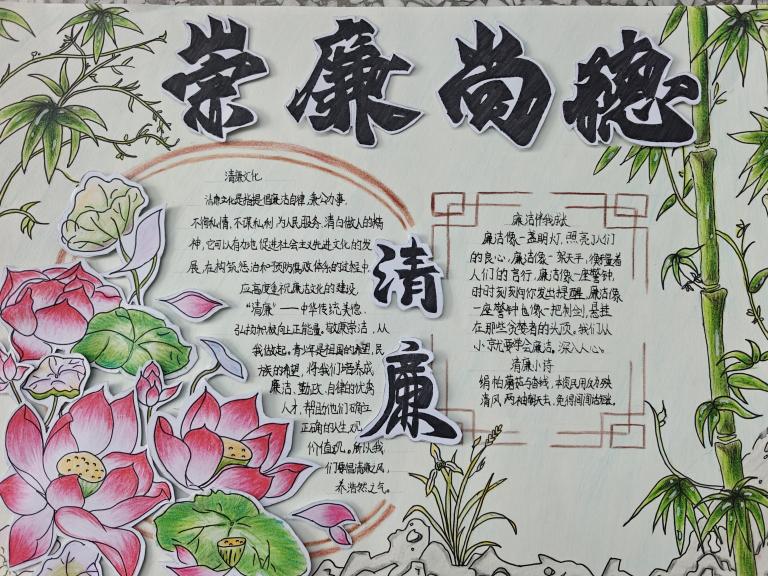 崇廉尚德
清廉文化
清廉文化是指提倡廉洁自律,秉公办事,
不徇私情,不谋私利,为人民服务,清白做人的精
神,它可以有力地促进社会主义先进文化的发
展,在构筑惩治和预防腐败体系的过程中,
应高度重视廉洁文化的建设。
“清廉”——中华传统美德,
弘扬积极向上正能量,敬廉崇洁,从
我做起。青少年是祖国的希望,民
族的希望,将我们培养成
廉洁、勤政、自律的优秀
人才,帮助他们确立
正确的人生观、
价值观。所以我
们要倡清廉之风,
养浩然之气。
清廉
廉洁伴我成长
廉洁像一盏明灯,照亮了人们
的良心,廉洁像一架天平,衡量着
人们的言行,廉洁像一座警钟,
时时刻刻向你发出提醒,廉洁像
一座警钟也像一把利剑,悬挂
在那些贪婪者的头顶。我们从
小就要学会廉洁。深入人心。
清廉小诗
绢帕蘑菇与香线,本资民用反为殃
清风两袖朝天去,免得闾阎话短长